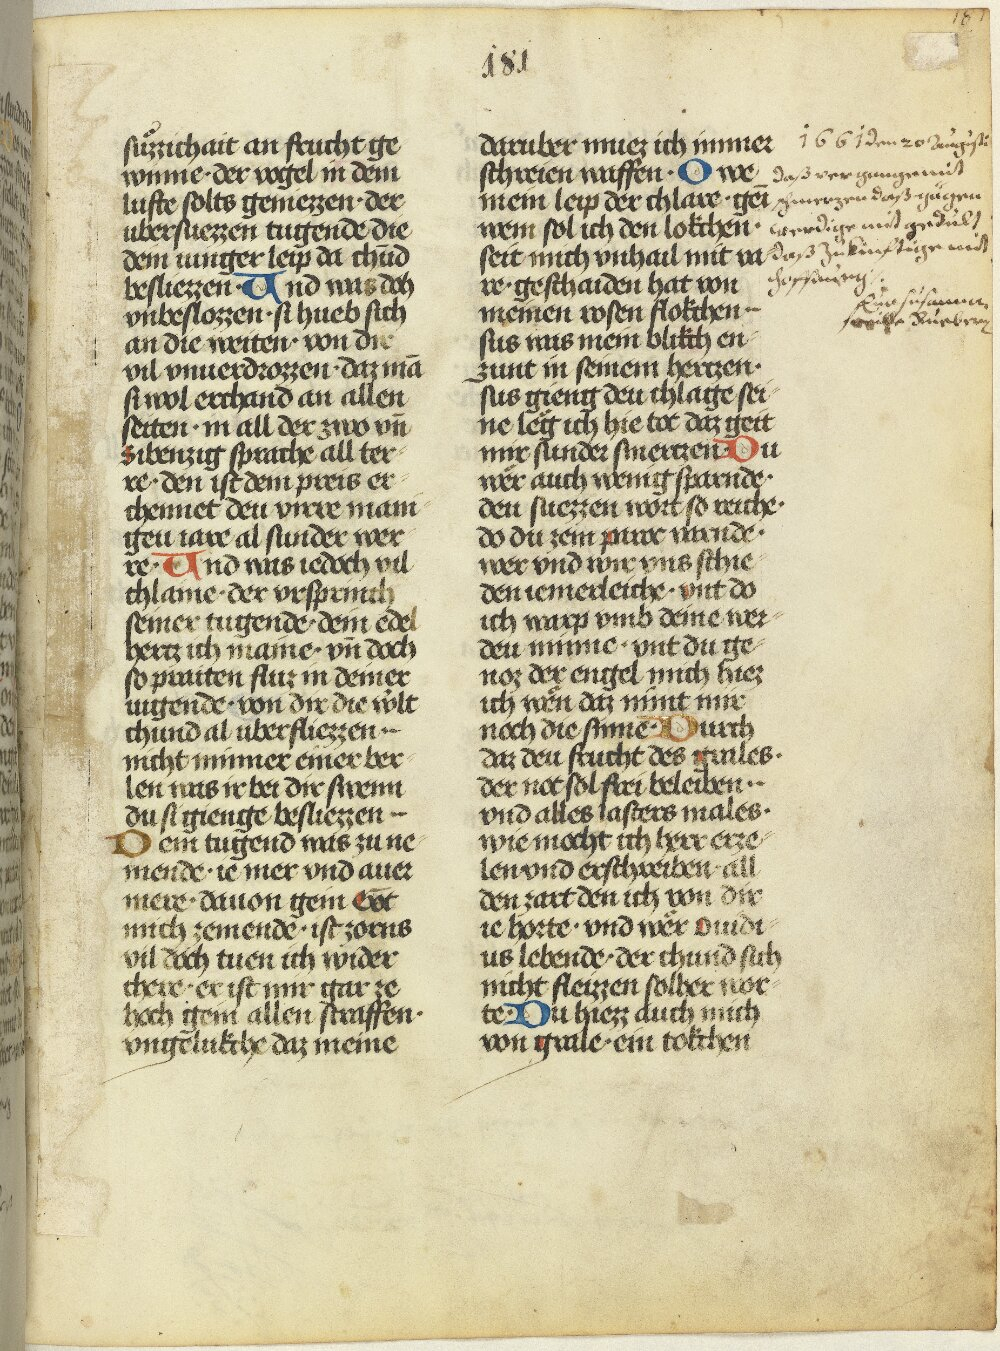 181
suͦzzichait an frucht ge
winne · der vogel in dem
lufte solts geniezzen · der
ubersuezzen tugende die
dem iunger leip da chūd
besliezzen · Und was doh
vnbeslozzen · si hueb sich
an die weiten · von dir
vil vnuerdrozzen · daz mā
si wol erchand an allen
seiten · in all der zwo vn̄
sibenzig sprache all ter-
re · den ist dem preis er-
chennet deu virre mani-
geu iare al sunder wer-
re · Und was iedoch vil
chlaine · der vrsprinch
seiner tugende · dein edel
hertz ich maine · vn̄ doch
so praiten fluz in deiner
iugende · von dir die wͤlt
chund al uberfliezzen ··
nicht immer einer ber-
len was ir bei dir swenn
du si gienge besliezzen ··
Dein tugend was zu ne-
mende · ie mer vnd auer
mere · dauon gein Got
mich zemende · ist zorns
vil doch tuen ich wider
chere · er ist mir gar ze
hoch gein allen straffen ·
vngelukche daz meine
daruber muez ich immer
schreien waffen · Owe
mein leip der chlare · gēi
wem sol ich den lokchen ·
seit mich vnhail mit va-
re · geschaiden hat von
meinen rosen flokchen ··
sus was mein blikch en-
zunt in seinem hertzen ·
sus gieng deu chlage sei-
ne leg ich hie tot daz geit
mir sunder smertzen · Du
wer auch wenig sparnde ·
den suezzen wort so reiche ·
do du zem parre varende ·
wer vnd wir vns schie-
den iemerleiche · vnt do
ich warp vmb deine wer-
deu minne · vnt du ge-
noz der engel mich hiez
ich wen daz nimt mir
noch die sinne · Durch
daz deu frucht des grales ·
der not sol frei beleiben ··
vnd alles lasters males ·
wie mocht ich herr erze-
len vnd erschreiben · all
den zart den ich von dir
ie horte · vnd wer Ouidi-
us lebende · der chund sich
nicht fleizzen solher wor-
te · Du hiezz auch mich
von grale · ein tokchen
1661 den 20 Augusti
daß vergangene mit
schmerzen daß gegen
werdige mit gedult
daß zukünftige mit
hoffnung